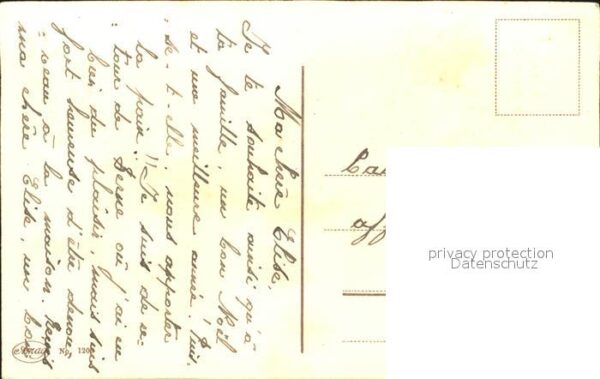 Ma chère Elise,
Je te souhaite ainsi qu'à
ta famille, un bon Noël
et une meilleure année! Puis-
se-t-elle, nous apporter
la paix!! Je suis de re-
tour de Berne où j'ai eu
bien du plaisir, mais suis
fort heureuse d'être de nou-
veau à la maison. Reçois
ma chère Elise, un bon
No. 120
privacy protection
Datenschutz